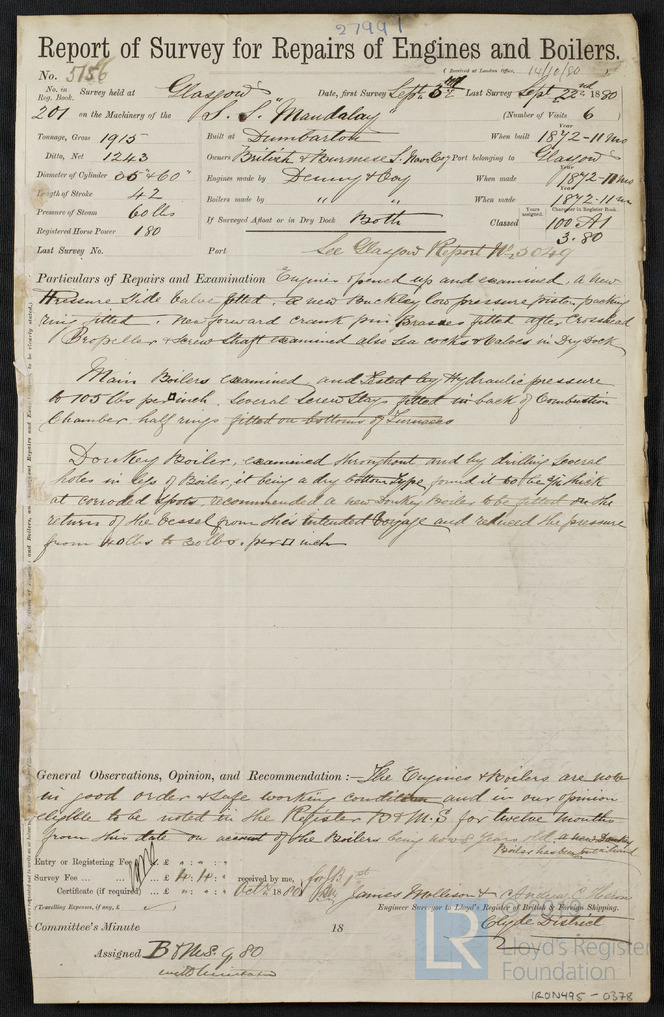 27991
Report of Survey for Repairs of Engines and Boilers.
(Received at London Office, 14/10/80)
No. 5156
No. in Reg. Book. Survey held at Glasgow Date, first Survey Sept 3rd Last Survey Sept 22nd 1880
201 on the Machinery of the S. S. "Mandalay" (Number of Visits 6)
Tonnage, Gross 1915 Built at Dumbarton When built 1872-11 mo
Ditto, Net 1243 Owners British & Burmese S. Nav. Coy Port belonging to Glasgow
Diameter of Cylinder 35 & 60" Engines made by Denny & Coy When made 1872-11 mo
Length of Stroke 42 Boilers made by " " When made 1872-11 m
Pressure of Steam 60 lbs If Surveyed Afloat or in Dry Dock Both Years assigned. Character in Register Book. Classed 100 A1
Registered Horse Power 180 3.80
Last Survey No. Port See Glasgow Report No. 5049
Particulars of Repairs and Examination Engines opened up and examined, a new
pressure slide valve fitted, a new Buckley low pressure piston packing
ring fitted. New forward crank pin Brasses fitted after Crosshead
Propeller & screw shaft examined also Sea cocks & Valves in Dry Dock
Main Boilers examined and tested by Hydraulic pressure
to 105 lbs per □ inch. Several Screw Stays fitted in back of Combustion
Chamber, half rings fitted on bottoms of Furnaces
Donkey Boiler, examined throughout and by drilling several
holes in legs of Boiler, it being a dry bottom type, found it to be thick
at corroded spots, recommended a new Donkey Boiler to be fitted on the
return of the vessel from this intended Voyage and reduced the pressure
from 40 lbs to 30 lbs. per □ inch
General Observations, Opinion, and Recommendation :— The Engines & Boilers are now
in good order & safe working condition and in our opinion
eligible to be noted in the Register B & M.S for twelve months
from this date on account of the Boilers being now 8 years old. a new Donkey
Boiler has been
Entry or Registering Fee £ " : " : "
Survey Fee ... ... £ 4 : 4 : " received by me,
Certificate (if required) ... £ " : " : " Oct 1880 James Mollison & Andrew C. Heron
(Travelling Expenses, if any, £ Engineer Surveyor to Lloyd's Register of British & Foreign Shipping.
Committee's Minute 18 Clyde District
Assigned B & M.S. 9,80
LR
Lloyd's Register
Foundation
IRON495-0378